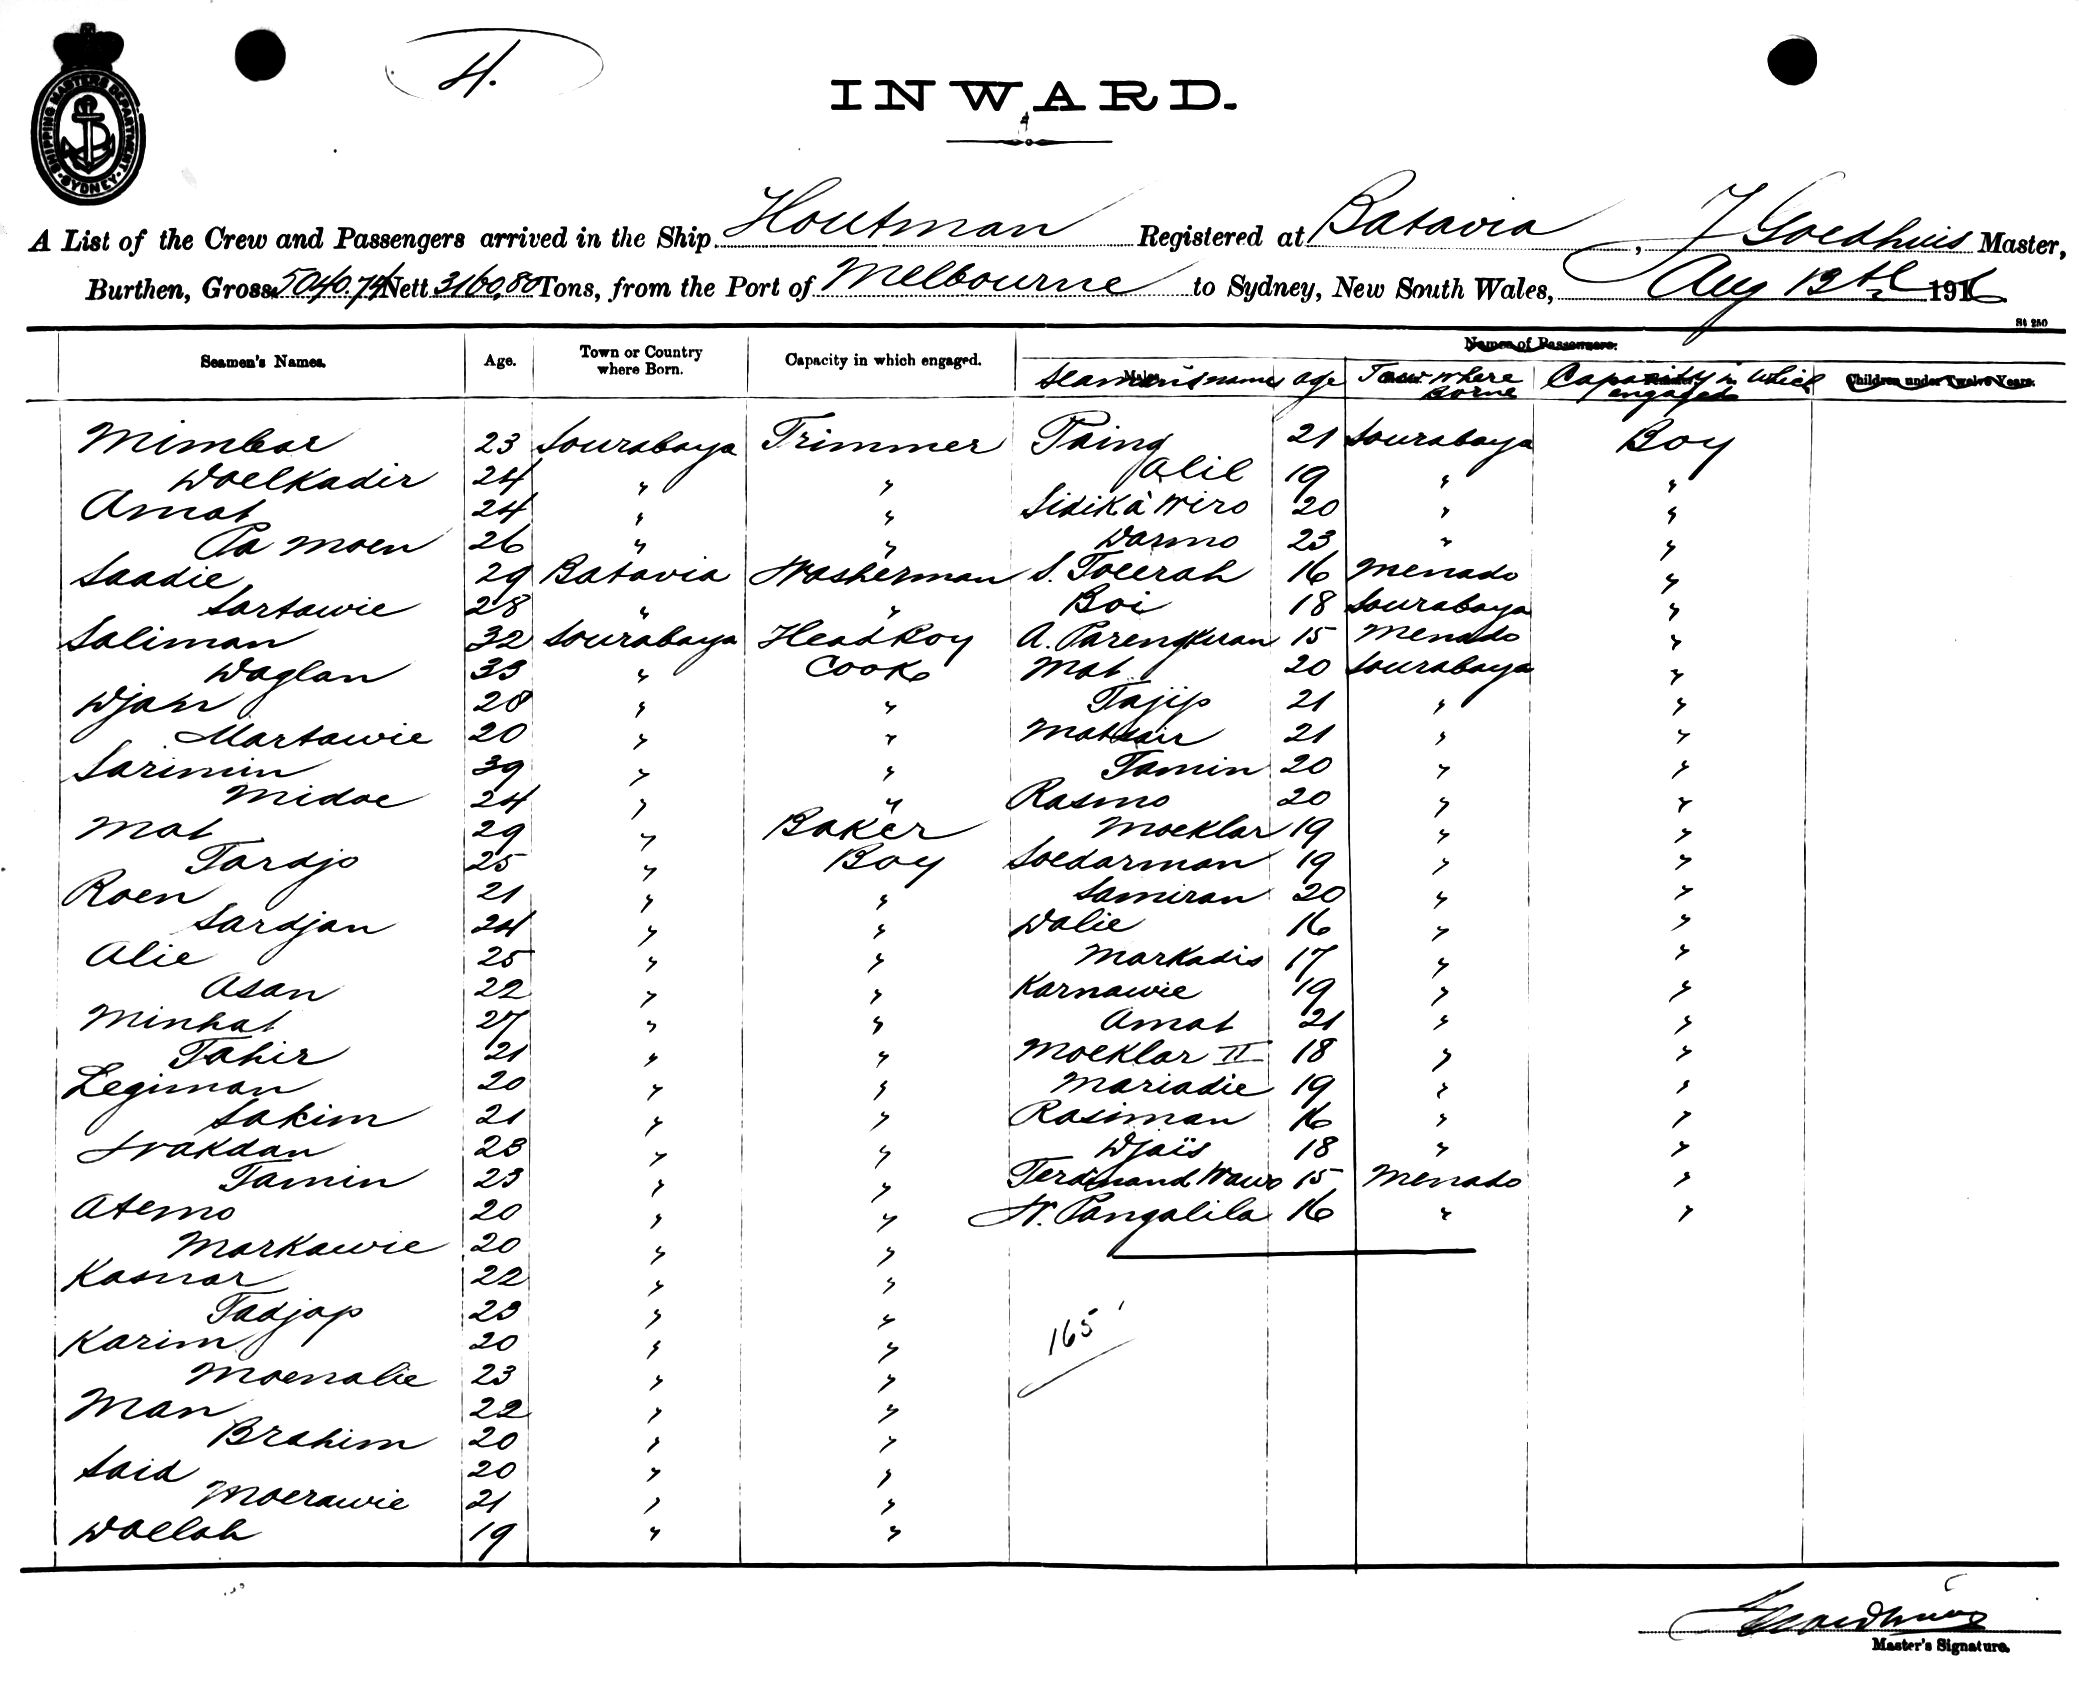 4.
SHIPPING MASTERS DEPARTMENT SYDNEY
INWARD.
A List of the Crew and Passengers arrived in the Ship Houtman Registered at Batavia, J Goedhuis Master,
Burthen, Gross 5040.74 Nett 3160.80 Tons, from the Port of Melbourne to Sydney, New South Wales, Aug 12th 1916
St 250
Seamen's Names. Age. Town or Country where Born. Capacity in which engaged. Names of Passengers.
Seamen's names age Town where Borne Capacity in which engaged Children under Twelve Years.
Mimbar 23 Sourabaya Trimmer Paing 21 Sourabaya Boy
Woelkadir 24 " " Alil 19 " "
Amat 24 " " Sidika Wiro 20 " "
Pa Moen 26 " " Darmo 23 " "
Saadie 29 Batavia Washerman S. Toerah 16 Menado "
Sartawie 28 " " Boi 18 Sourabaya "
Saliman 32 Sourabaya Head Boy A. Parengkuan 15 Menado "
Waglan 33 " Cook Mat 20 Sourabaya "
Djan 28 " " Tajip 21 " "
Martawie 20 " " Matsair 21 " "
Sarimin 39 " " Tamin 20 " "
Midoe 24 " " Rasmo 20 " "
Mat 29 " Baker Moeklar 19 " "
Tardjo 25 " Boy Soedarman 19 " "
Roen 21 " " Samiran 20 " "
Sardjan 24 " " Walie 16 " "
Alie 25 " " Markadis 17 " "
Asan 22 " " Karnawie 19 " "
Minhat 27 " " Amat 21 " "
Tahir 21 " " Moeklar II 18 " "
Legiman 20 " " Mariadie 19 " "
Sakim 21 " " Rasiman 16 " "
Wakdan 23 " " Djaïs 18 " "
Tamin 23 " " Ferdinand Wawo 15 Menado "
Atemo 20 " " W. Pangalila 16 " "
Markawie 20 " "
Kasnar 22 " "
Tadjap 23 " "
Karim 20 " "
Moenalie 23 " "
Man 22 " "
Brahim 20 " "
Said 20 " "
Moerawie 21 " "
Waelah 19 " "
165
J Goedhuis
Master's Signature.